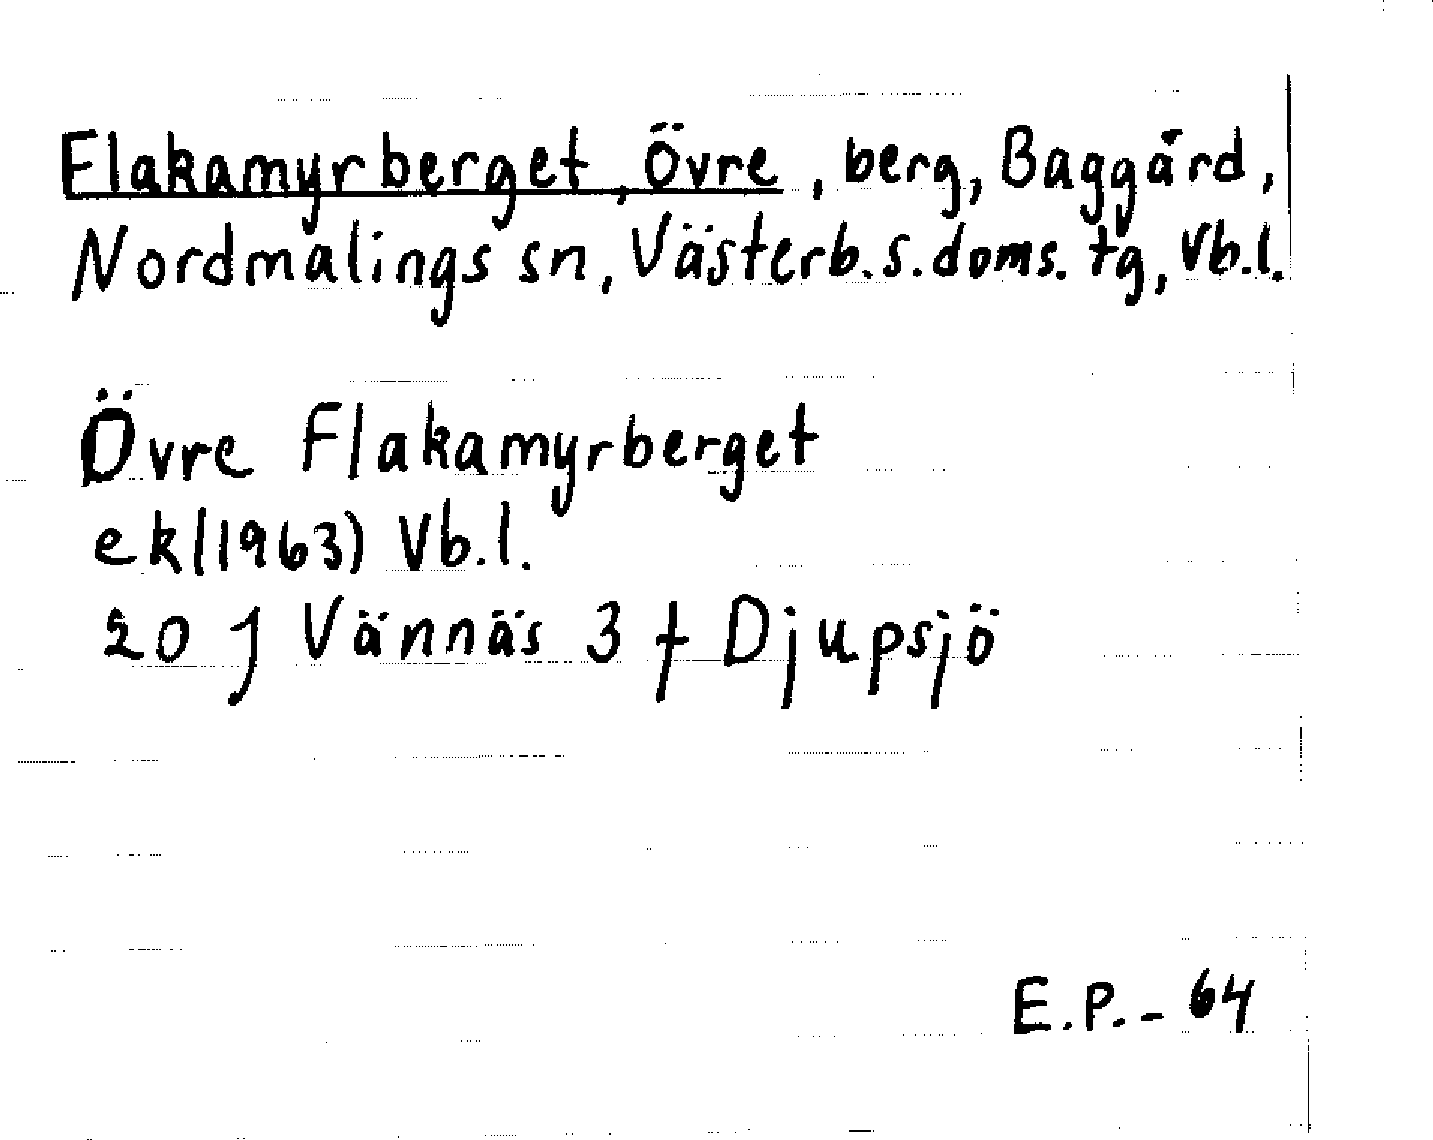 Flakamyrberget, Övre, berg, Baggård,
Nordmalings sn, Västerb. s. doms. tg, Vb.l.
Övre Flakamyrberget
ek(1963) Vb.l.
20 J Vännäs 3 f Djupsjö
E.P. - 64